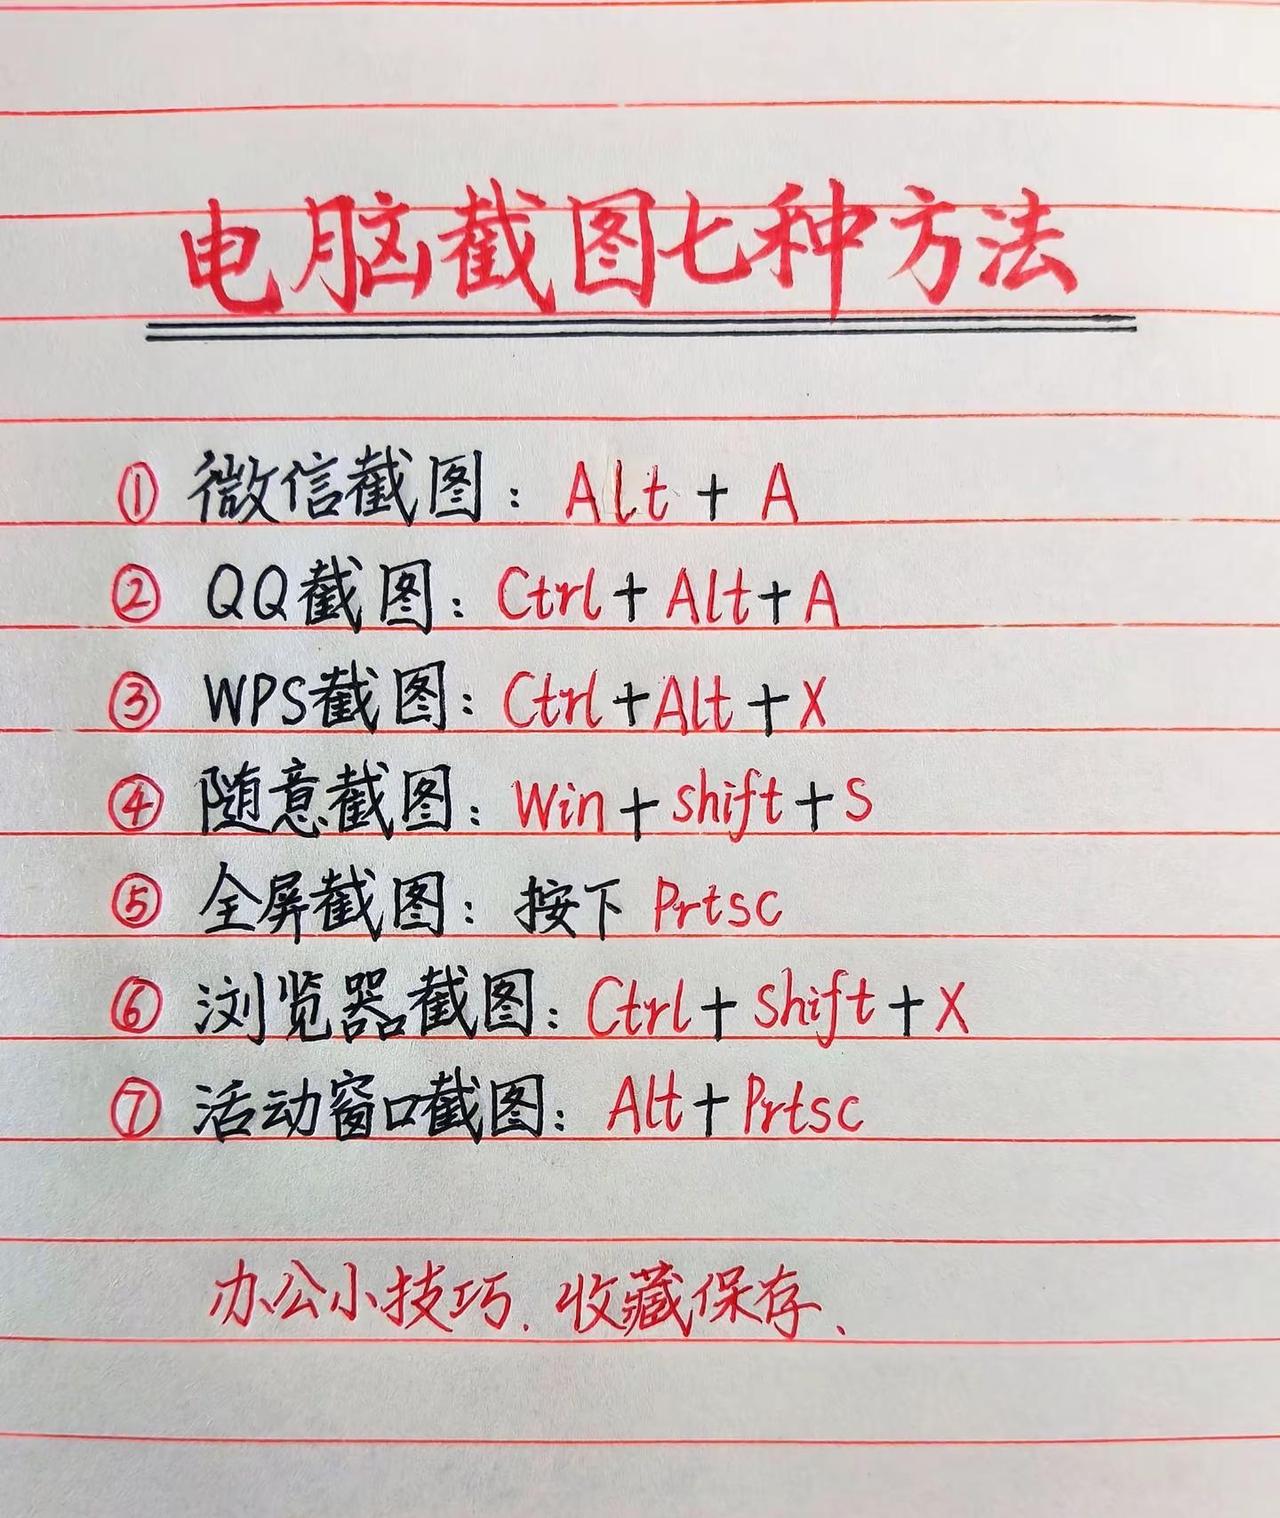 电脑截图七种方法
① 微信截图：Alt + A
② QQ截图：Ctrl + Alt + A
③ WPS截图：Ctrl + Alt + X
④ 随意截图：Win + shift + S
⑤ 全屏截图：按下 Prtsc
⑥ 浏览器截图：Ctrl + Shift + X
⑦ 活动窗口截图：Alt + Prtsc
办公小技巧、收藏保存、